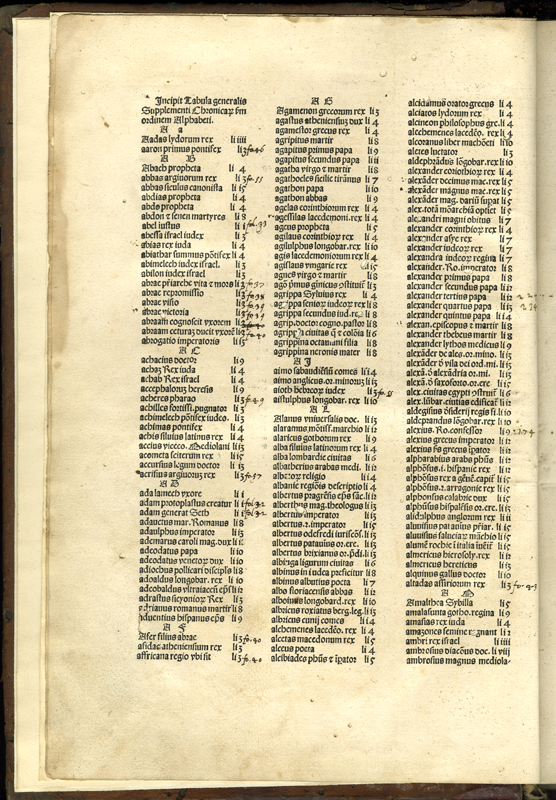 Incipit Tabula generalis
Supplementi Chronicarum sm
ordinem Alphabeti.
A a
Aadas lydorum rex li iiii
aaron primus pontifex li 3
A B
Abach propheta li 4
abbas arginorum rex li 3
abbas siculus canonista li 15
abdias propheta li 4
abdo propheta li 4
abdon et senen martyres li 8
abel iustus li 1
abessa israel iudex li 3
abias rex iuda li 4
abiathar summus põtifex li 4
abimelech iudex israel. li 3
abilon iudex israel li 3
abrae vita et mors li 2
abrae repromissio
abrae visio
abrae victoria
abraam cognoscit vxorem li 2
abrogatio imperatoris li 15
A C
achacius doctor li 9
achaz Rex iuda li 4
achab Rex israel li 4
accephalorum heresis li 9
acheres pharao li 3
achilles fortissi.pugnator li 3
achimelech põtifex iudeo. li 3
achimas pontifex li 4
achis siluius latinus rex li 4
accius viceco. Mediolani li 13
acometa sciterum rex li 15
accursius legum doctor li 13
acrisius arginorum rex li 3
A D
ada lamech vxore li 1
adam protoplastus creatur li 1
adam generat Seth li 1
adauctus mar. Romanus li 8
adaulphus imperator li 13
ademarus caroli mag. dux li 11
adeodatus papa li 10
adeodatus venetorum dux li 10
adiochus pollicari discipls li 8
adoaldus longobar. rex li 10
adrastus sicyonior Rex li 3
adrianus romanus martir li 8
A F
Afer filius abrae li 3 fo. 40
asidas atheniensium rex li 3
affricana regio vbi sit li 3 fo. 40
A G
Agamenon grecorum rex li 3
agastus atheniensis dux li 4
agamestor grecus rex li 4
agripitus martir li 8
agapitus primus papa li 9
agapitus secundus papa li 11
agatha virgo et martir li 8
agathocles sicilie tirãnus li 7
agathon papa li 10
agathon abbas li 9
agelas corinthiorum rex li 4
agessilas lacedemoni.rex li 4
ageus propheta li 5
agilaus corinthiorum rex li 4
agilulphus longobar.rex li 10
agis lacedemoniorum rex li 4
agislaus vngarie rex li 5
agnes virgo et martir li 8
agrippa Syluius rex li 4
agrippa senior iudeorum rex li 8
agrippa secundus iud.rex li 8
agrip.doctor cogno.pastor li 8
agrippina octauiani filia li 8
agrippina neronis mater li 8
A I
aimo sabaudiensium comes li 14
aimo anglicus.or.minorum li 13
aioth hebreorum iudex li 3
aistulphus longobar. rex li 10
A L
Alanus vniuersalis doc. li 13
alaramus mõtisf.marchio li 12
alaricus gothorum rex li 9
alba siluius latinorum rex li 4
alba lombardie ciuitas li 6
albatherius arabas medi. li 12
albeor religio li 14
albanie regiõis descriptio li 4
albertus pragẽsis eps sãc. li 11
albertus mag.theologus li 13
albertus imperator li 13
albertus.2. imperator li 15
albertus odefredi iurisco. li 13
albertus patauius or.ere. li 13
albertus brixianus or.põdi. li 13
albinga ligurum ciuitas li 6
albinus in iudea preficitur li 8
albinus albutius poeta li 7
albo floriacensis abbas li 12
alboinus longobard.rex li 10
albricus roxiatus berg.leg. li 13
albricus cunij comes li 14
alchemenes lacedẽo. rex li 4
alectas macedonum rex li 5
alceus poeta li 4
alcibiades phũs et ipator li 5
alcidamus orator grecus li 4
alciatos lydorum rex li 4
alcineon philosophus gre. li 4
alcehemenes lacedẽo. rex li 4
alcoranus liber machometi li 10
alctes luctator li 3
aldephrãdus lõgobar.rex li 10
alexander corinthiorum rex li 4
alexander decimus mac.rex li 5
alexãder magnus mac.rex li 5
alexãder mag. darium supat li 5
alex.totã monarchiã optiet li 5
alexandri magni obitus li 7
alexander corinthiorum rex li 4
alexander asye rex li 7
alexander iudeorum rex li 7
alexandra iudeorum regina li 7
alexander.Ro.imperator li 8
alexander primus papa li 8
alexander secundus papa li 12
alexander tertius papa li 12
alexander quartus papa li 13
alexander quintus papa li 14
alexan.episcopus et martir li 8
alexander thebeus martir li 8
alexander lythos medicus li 9
alexãder de ales.or.mino. li 13
alexãder de vila dei ord.mi. li 13
alexã.de alexãdria or.mi. li 13
alexã.de saxoferato.or.ere li 15
alex.ciuitas egypti cõstruitur li 6
alex.lũbar.ciuitas edificatur li 12
aldegisus desiderij regis fi. li 10
aldeprandus lõgobar. rex li 10
alexius. Ro.confessor li 9
alexius grecus imperator li 12
alexius fõ grecus ipator li 12
alpharabius arabs phũs li 12
alphõsus.i. hispanie rex li 15
alphõsus rex a genuẽ.capit li 15
alphõsus.2. arragonie rex li 15
alphonsus calabrie dux li 15
alphõsus hispalẽsis or.ere. li 13
aluisius patauus priar. li 15
aluisius saluciarum mãchio li 15
almericus hierosoly.rex li 12
almericus hereticus li 13
alquinus gallus doctor li 10
altadas assiriorum rex li 3 fo. 43
A M
Amalthea Sybilla li 5
amalasunta gotho.regina li 9
amasias rex iuda li 4
amazones femine regnant li 2
ambri rex israel li 4
ambrosius diacõus doc. li viii
ambrosius magnus mediola-